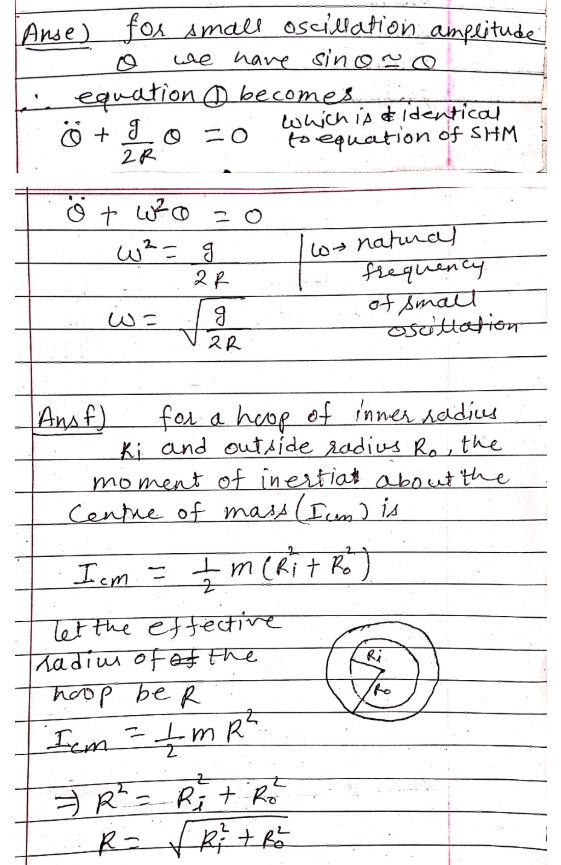 Ans e) for small oscillation amplitude
θ we have sin θ ≃ θ
∴ equation ① becomes
θ̈ + g/2R θ = 0 which is identical to equation of SHM
θ̈ + ω²θ = 0
ω² = g/2R
ω = √(g/2R)
ω → natural
frequency
of small
oscillation
Ans f) for a hoop of inner radius
Ri and outside radius Ro, the
moment of inertia about the
Centre of mass (Icm) is
Icm = 1/2 m (Ri² + Ro²)
let the effective
radius of the
hoop be R
Ri
Ro
Icm = 1/2 m R²
⇒ R² = Ri² + Ro²
R = √(Ri² + Ro²)